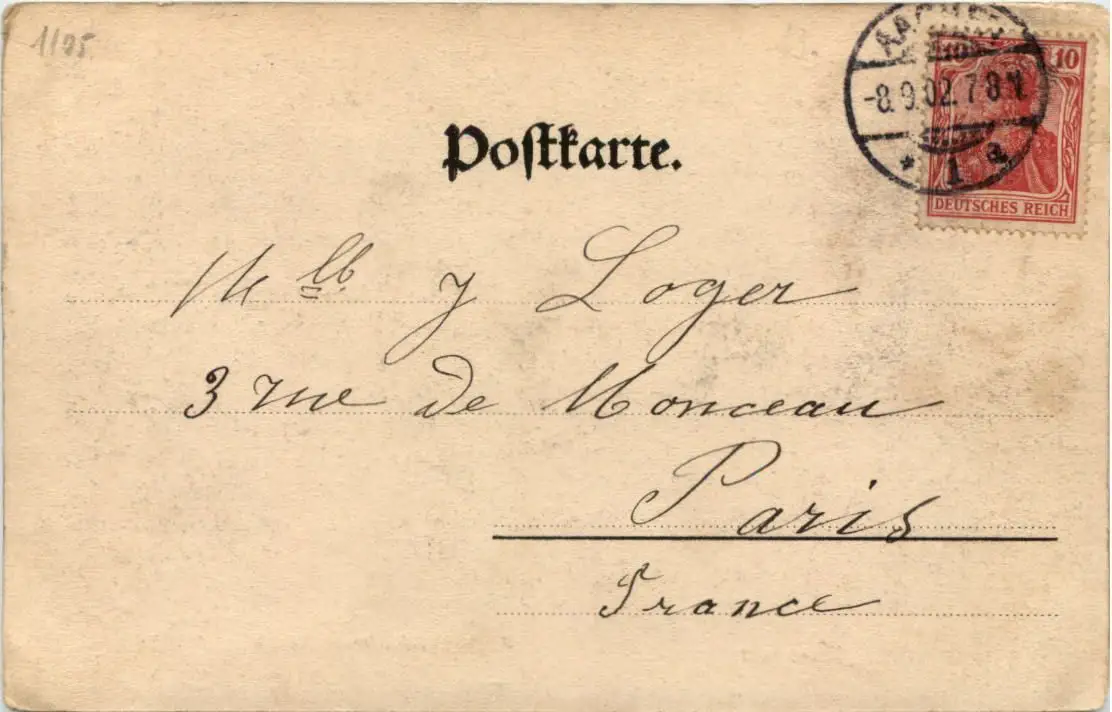 1105
AACHEN
10 10
-8.9.02. 7 8 N.
* 1 a
DEUTSCHES REICH
Postkarte.
Mlle J Loger
3 rue de Monceau
Paris
France